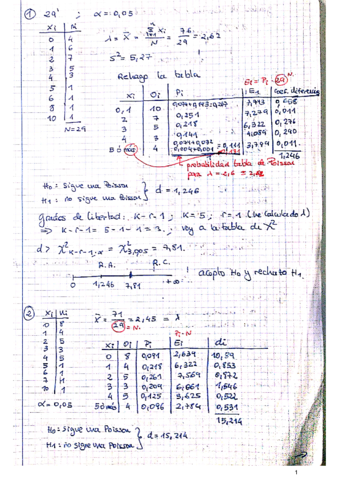 ① 29' ; α=0,05
xi | Ni
0 4
1 6
2 7
3 5
4 3
5 1
6 1
8 1
10 1
N=29
λ = x̄ = Σ xi / N = 76/29 = 2,62
S² = 5,27
Rehago la tabla
Ei = Pi · 29 N
xi Oi Pi Ei
0,1 10 7,743 0,658
2 7 0,251 7,279 0,011
3 5 0,218 6,322 0,276
4 7 0,141 4,089
5 ó más 4 = 0,111 3,799 0,011
1,246
probabilidad tabla de Poisson
para λ = 2,6 ≈ 2,62
H₀: Sigue una Poisson
H₁: no sigue una Poisson } d = 1,246
grados de libertad: K-r-1 ; K=5 ; r=1 (he calculado λ)
⇒ K-r-1 = 5-1-1 = 3 ; voy a la tabla de χ²
d > χ² K-r-1,α = χ² 3,0.05 = 7,81
R.A. R.C.
0 1,246 7,81 +∞
acepto H₀ y rechazo H₁
②
xi ni
0 8
1 4
2 5
3 3
4 5
5 1
6 1
7 1
10 1
α=0,05
x̄ = 71/29 = 2,45 = λ
= N
Pi · N
xi Oi Pi Ei di
0 8 0,091 2,639 10,59
1 4 0,218 6,322 0,853
2 5 0,261 7,569 0,872
3 3 0,209 6,061 1,546
4 5 0,125 3,625 0,522
5 ó más 4 0,096 2,784 0,531
15,214
H₀: sigue una Poisson
H₁: no sigue una Poisson } d = 15,214
1